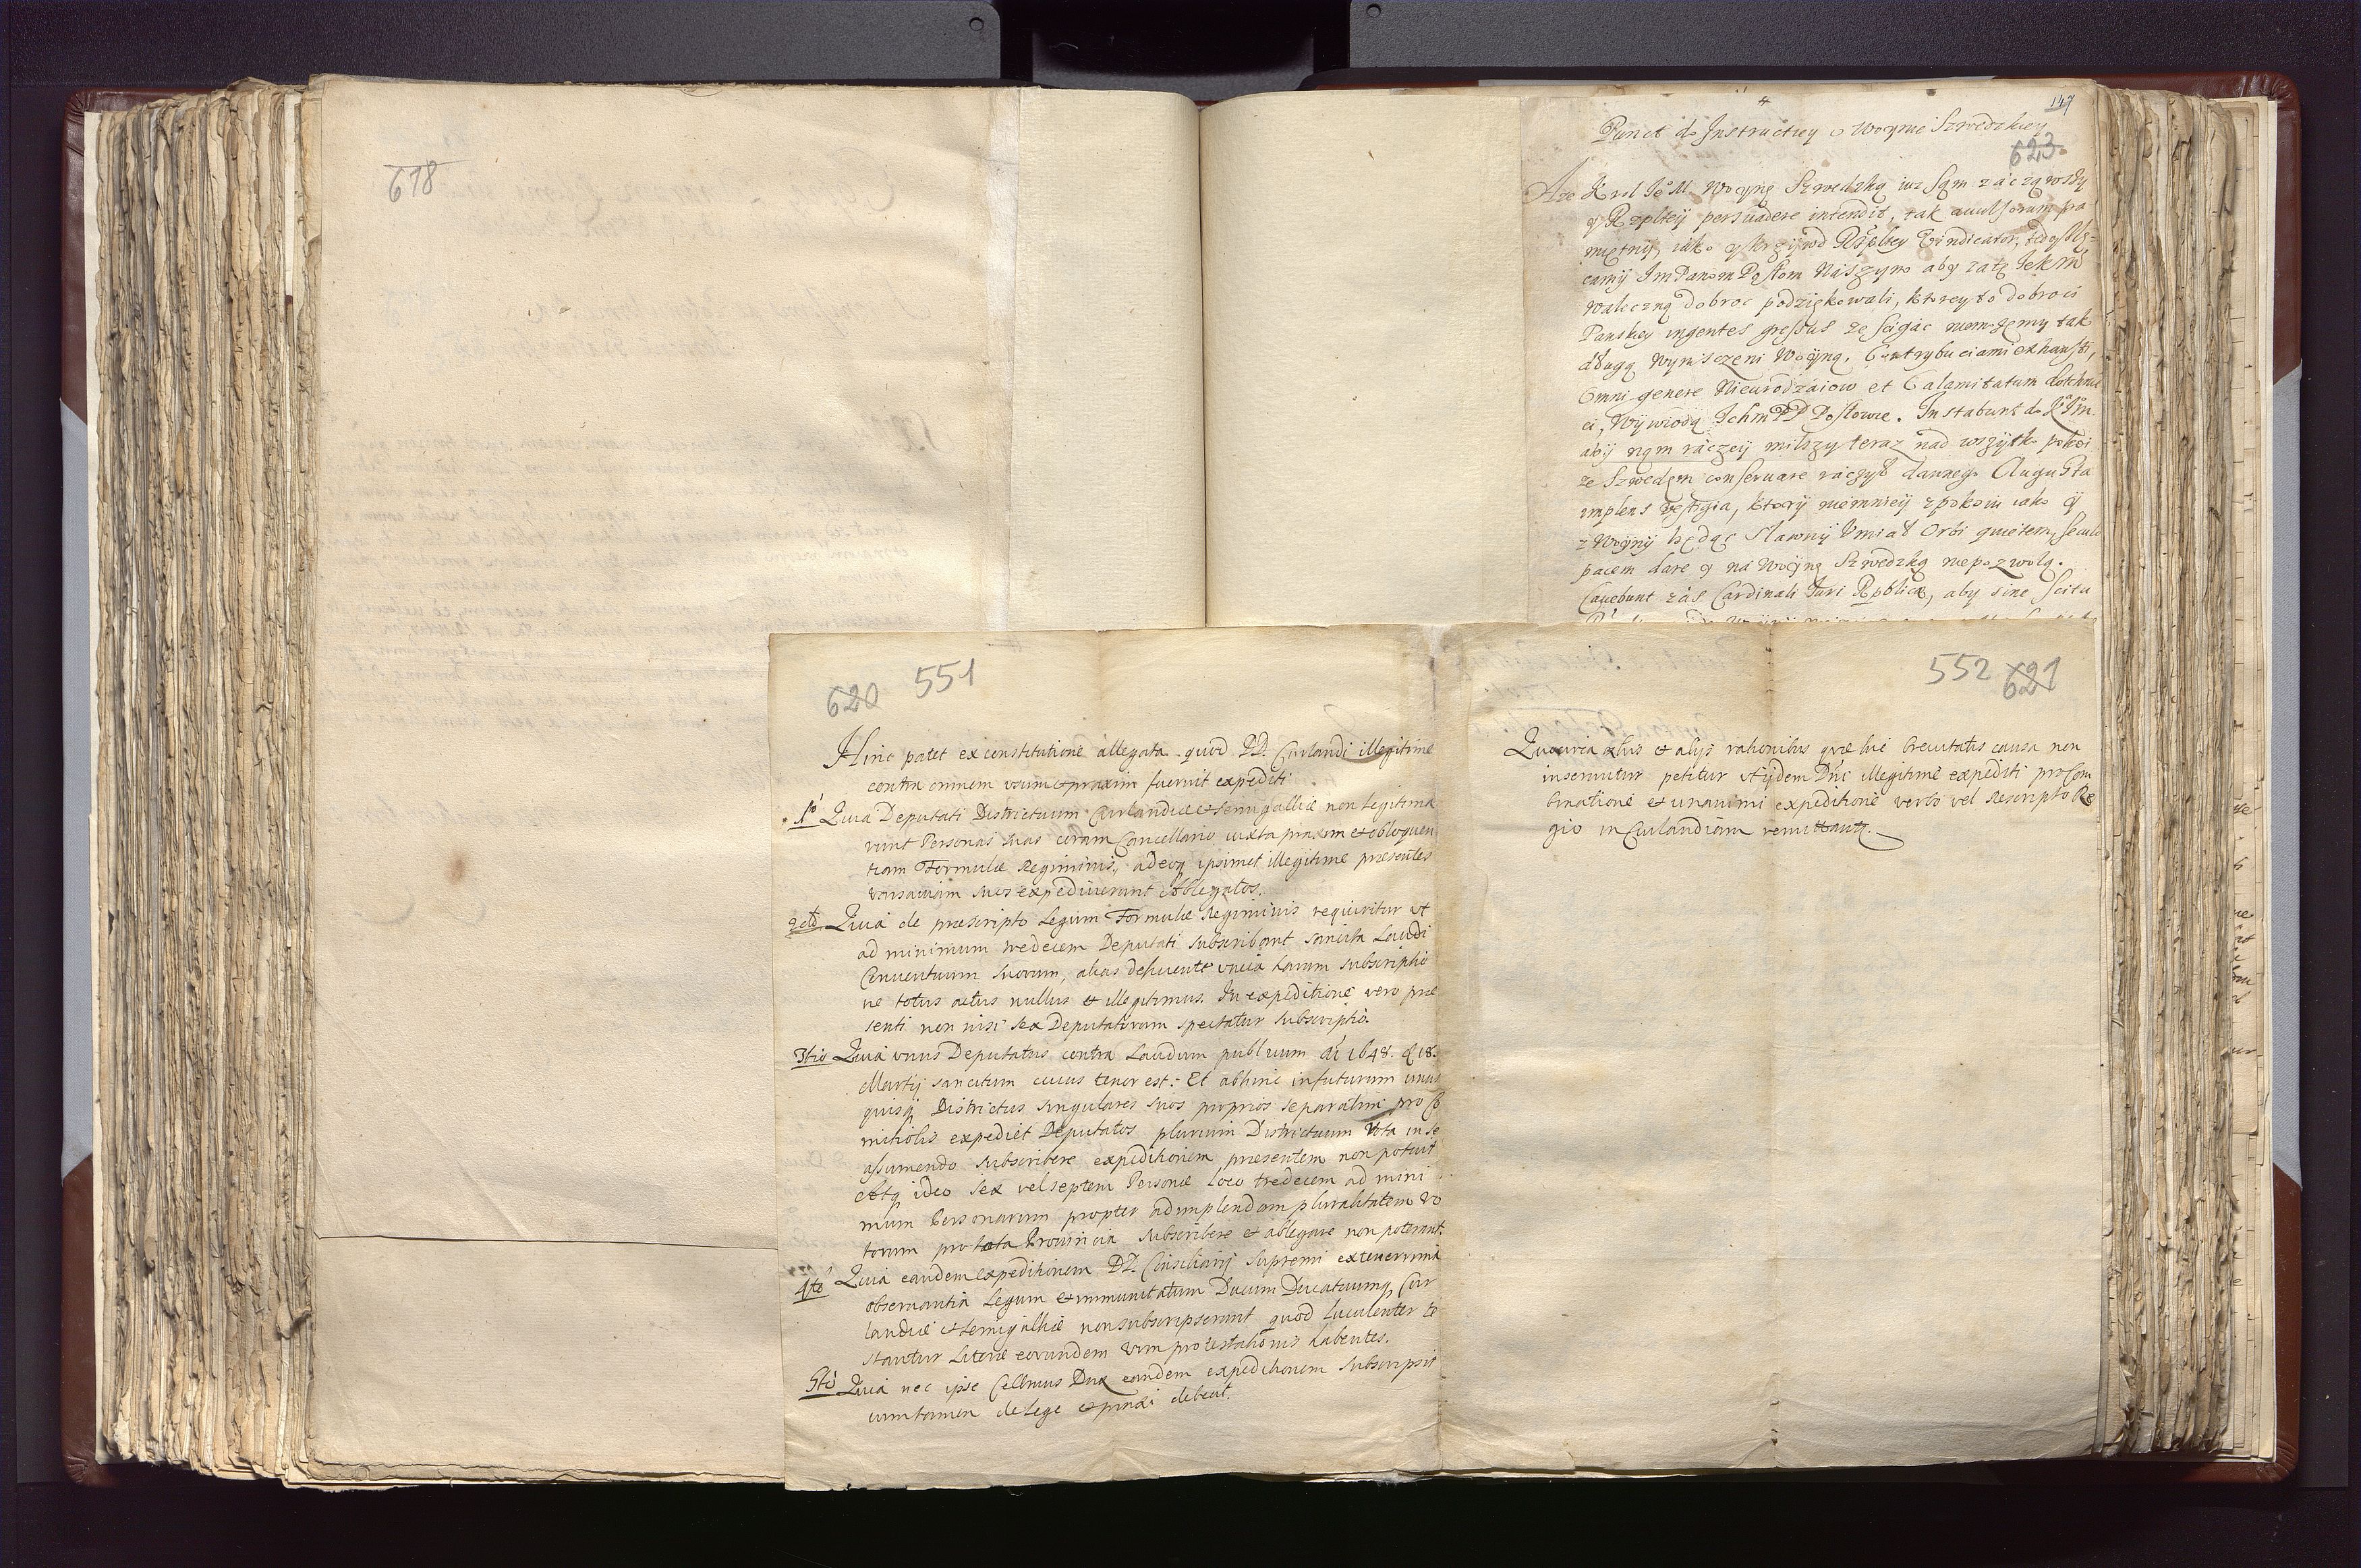 618
147
Punct do Instructiey o Woynie Szwedzkiey
623.
Aze Krol Je M Woynę Szwedzką iuz sąm zácząwszy
y Rzpltey persuadere intendit, tak avulsorum pa
miętnij, iáko y krzywd Rzpltey Vindicator, tedy zle=
camy Im Panom Posłom Nászym aby zatę Jek Mci
waleczną dobroc podziękowali, ktorey to dobroci
Panskey ingentes gressus ze scigác niemozemy tak
długą wyniszczeni Woyną, Contrybuciami exhausti,
Omni genere Nieurodzáiow et Calamitatum dotchnię
ci, Wywiodą Ichm PP Posłowie. Instabunt do K Im
aby nąm ráczey milszy teraz nad wszytko pokoi
ze Szwedem conservare ráczył dawnego Augusta
implens vestigia, ktory niemniey zpokoiu iako y
z Woyny będąc sławny Vmiał Orbi quietem, seculo
pacem dare y ná Woynę Szwedzką niepozwolą.
Cavebunt zás Cardinali Iuri Rpblicæ, aby sine scitu
620 551
Hinc patet ex constitutione allegata quod DD. Curlandi illegitime
contra omnem usum et praxim fuerint expediti
1º Quia Deputati Districtuum Curlandiæ et Semigalliæ non legitima
runt Personas suas coram Cancellario iuxta praxim et obloquen
tiam Formulæ Regiminis, adeoq ipsimet illegitime præsentes
Varsaviam suos expediverunt Ablegatos.
2dó Quia de præscripto Legum Formulæ Regiminis requiritur ut
ad minimum tredecem Deputati subscribant sancita Laudi
Conventuum suorum, alias deficiente unica harum subscriptio
ne totus actus nullus et illegitimus. In expeditione vero præ
senti non nisi sex Deputatorum spectatur subscriptio.
3tio Quia unus Deputatus contra Laudum publicum Ai 1648. d 18.
Martij sancitum cuius tenor est: Et abhinc in futurum unus
quisq Districtus singulares suos proprios separatim pro Co
mitiolis expediet Deputatos plurium Districtuum Vota in se
assumendo subscribere expeditionem præsentem non potuit
Atq ideo sex vel septem Personæ loco tredecem ad mini
mum Personarum propter adimplendam pluralitatem vo
torum pro tota Provincia subscribere et ablegare non poterant.
4tó Quia eandem expeditionem DD. Consiliarij Supremi ex tenerrima
observantia Legum et immunitatum Ducum Ducatuumq Cur
landiæ et Semigalliæ non subscripserunt quod luculenter te
stantur Literæ eorundem vim protestationis habentes.
5tó Quia nec ipse Cellmus Dux eandem expeditionem subscripsit
cum tamen de Lege et praxi debeat.
552 621
et alijs rationibus quæ hic brevitatis causa non
inseruntur petitur ut ijdem Dni illegitime expediti pro com
binatione et unanimi expeditione verbo vel Rescripto Re
gio in Curlandiam remittantr.